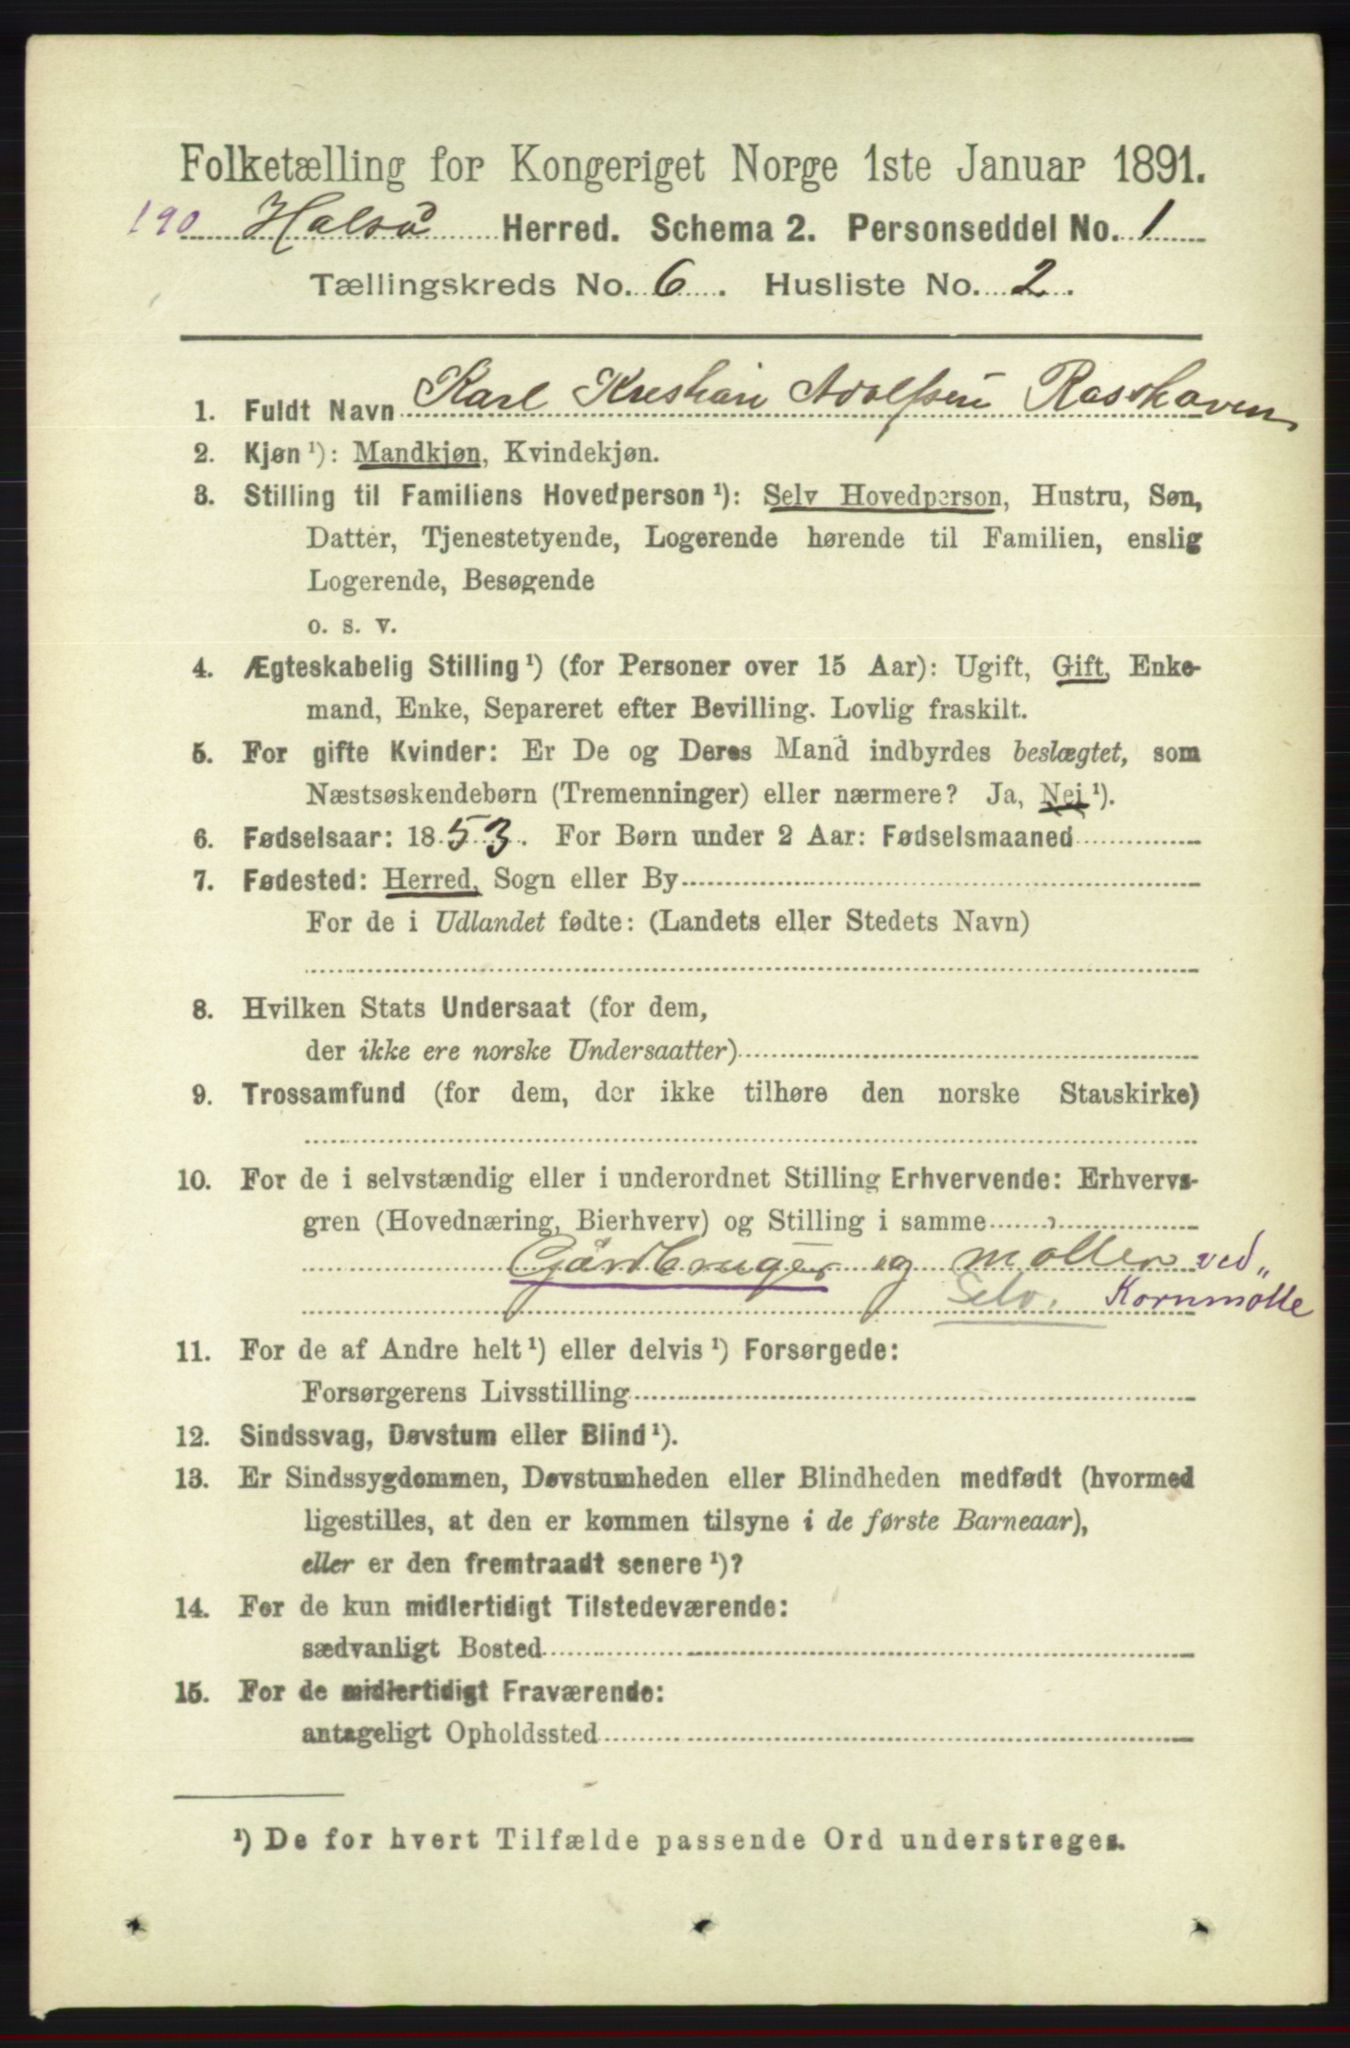 Folketælling for Kongeriget Norge 1ste Januar 1891.
190 Halså Herred. Schema 2. Personseddel No. 1
Tællingskreds No. 6. Husliste No. 2.
1. Fuldt Navn Karl Kristian Adolfsen Rosshaven
2. Kjøn ¹): Mandkjøn, Kvindekjøn.
3. Stilling til Familiens Hovedperson ¹): Selv Hovedperson, Hustru, Søn,
Datter, Tjenestetyende, Logerende hørende til Familien, enslig
Logerende, Besøgende
o. s. v.
4. Ægteskabelig Stilling ¹) (for Personer over 15 Aar): Ugift, Gift, Enke-
mand, Enke, Separeret efter Bevilling. Lovlig fraskilt.
5. For gifte Kvinder: Er De og Deres Mand indbyrdes beslægtet, som
Næstsøskendebørn (Tremenninger) eller nærmere? Ja, Nei ¹).
6. Fødselsaar: 1853. For Børn under 2 Aar: Fødselsmaaned
7. Fødested: Herred, Sogn eller By
For de i Udlandet fødte: (Landets eller Stedets Navn)
8. Hvilken Stats Undersaat (for dem,
der ikke ere norske Undersaatter)
9. Trossamfund (for dem, der ikke tilhøre den norske Statskirke)
10. For de i selvstændig eller i underordnet Stilling Erhvervende: Erhvervs-
gren (Hovednæring, Bierhverv) og Stilling i samme
Gårdbruger og møller ved
Selv. Kornmølle
11. For de af Andre helt ¹) eller delvis ¹) Forsørgede:
Forsørgerens Livsstilling
12. Sindssvag, Døvstum eller Blind ¹).
13. Er Sindssygdommen, Døvstumheden eller Blindheden medfødt (hvormed
ligestilles, at den er kommen tilsyne i de første Barneaar),
eller er den fremtraadt senere ¹)?
14. For de kun midlertidigt Tilstedeværende:
sædvanligt Bosted
15. For de midlertidigt Fraværende:
antageligt Opholdssted
¹) De for hvert Tilfælde passende Ord understreges.